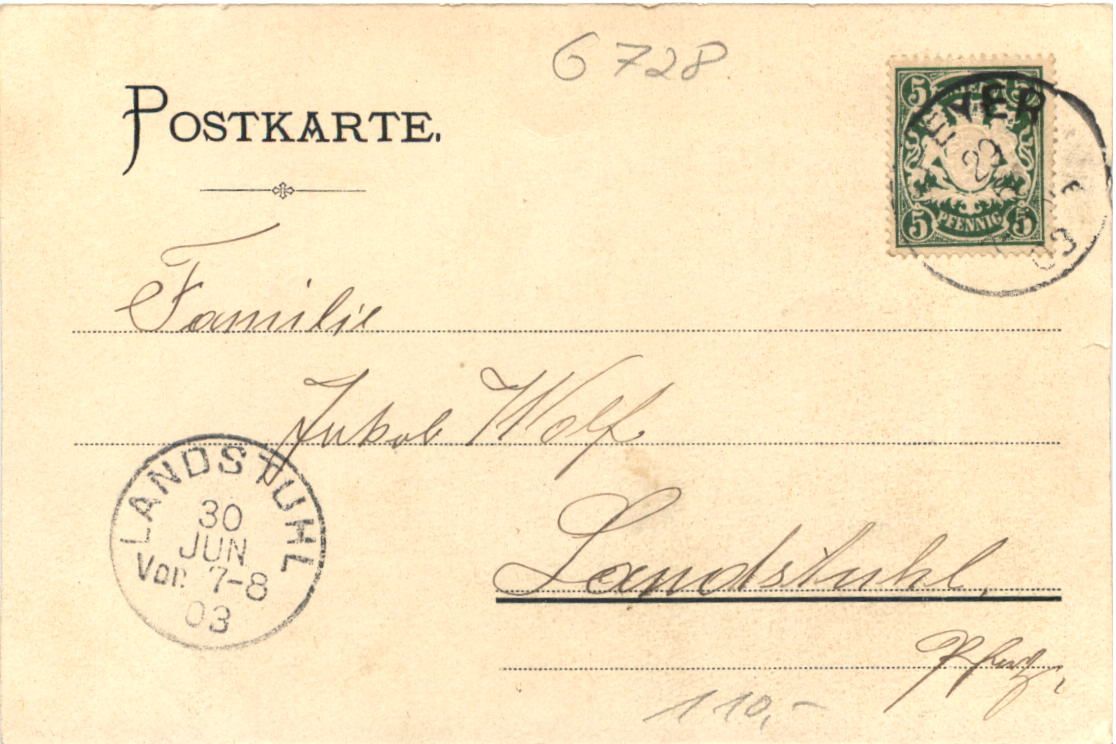 6728
POSTKARTE.
5 5
EYER
29
5 PFENNIG 5
03
Familie
Jakob Wolf
LANDSTUHL
30
JUN
Vor. 7-8
03
Landstuhl,
Pfalz,
110,-